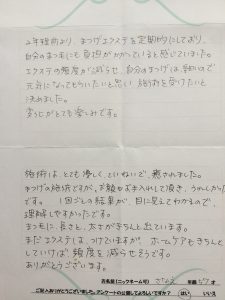 2年程前より、まつげエクステを定期的にしており、
自分のまつ毛にも負担がかかっていると感じていました。
エクステの頻度が減らせ、自分のまつげは
元気になってもらいたいと思い、施術を受けたいと
決めました。
変化がとても楽しみです。
施術は、とても優しく、ていねいで、癒されました。
まつげの施術ですが、お顔もお手入れして頂き、うれしかった
です。 1回ごとの結果が、目に見えてわかるので、
理解しやすかったです。
まつ毛に、長さと、太さがきちんと出ています。
まだエクステは、つけていますが、ホームケアもきちんと
していけば 頻度を減らせそうです。
ありがとうございます。
お名前（ニックネーム可） 年齢 57才
ご記入ありがとうございました。アンケートの公開してよろしいですか？ はい、 いいえ